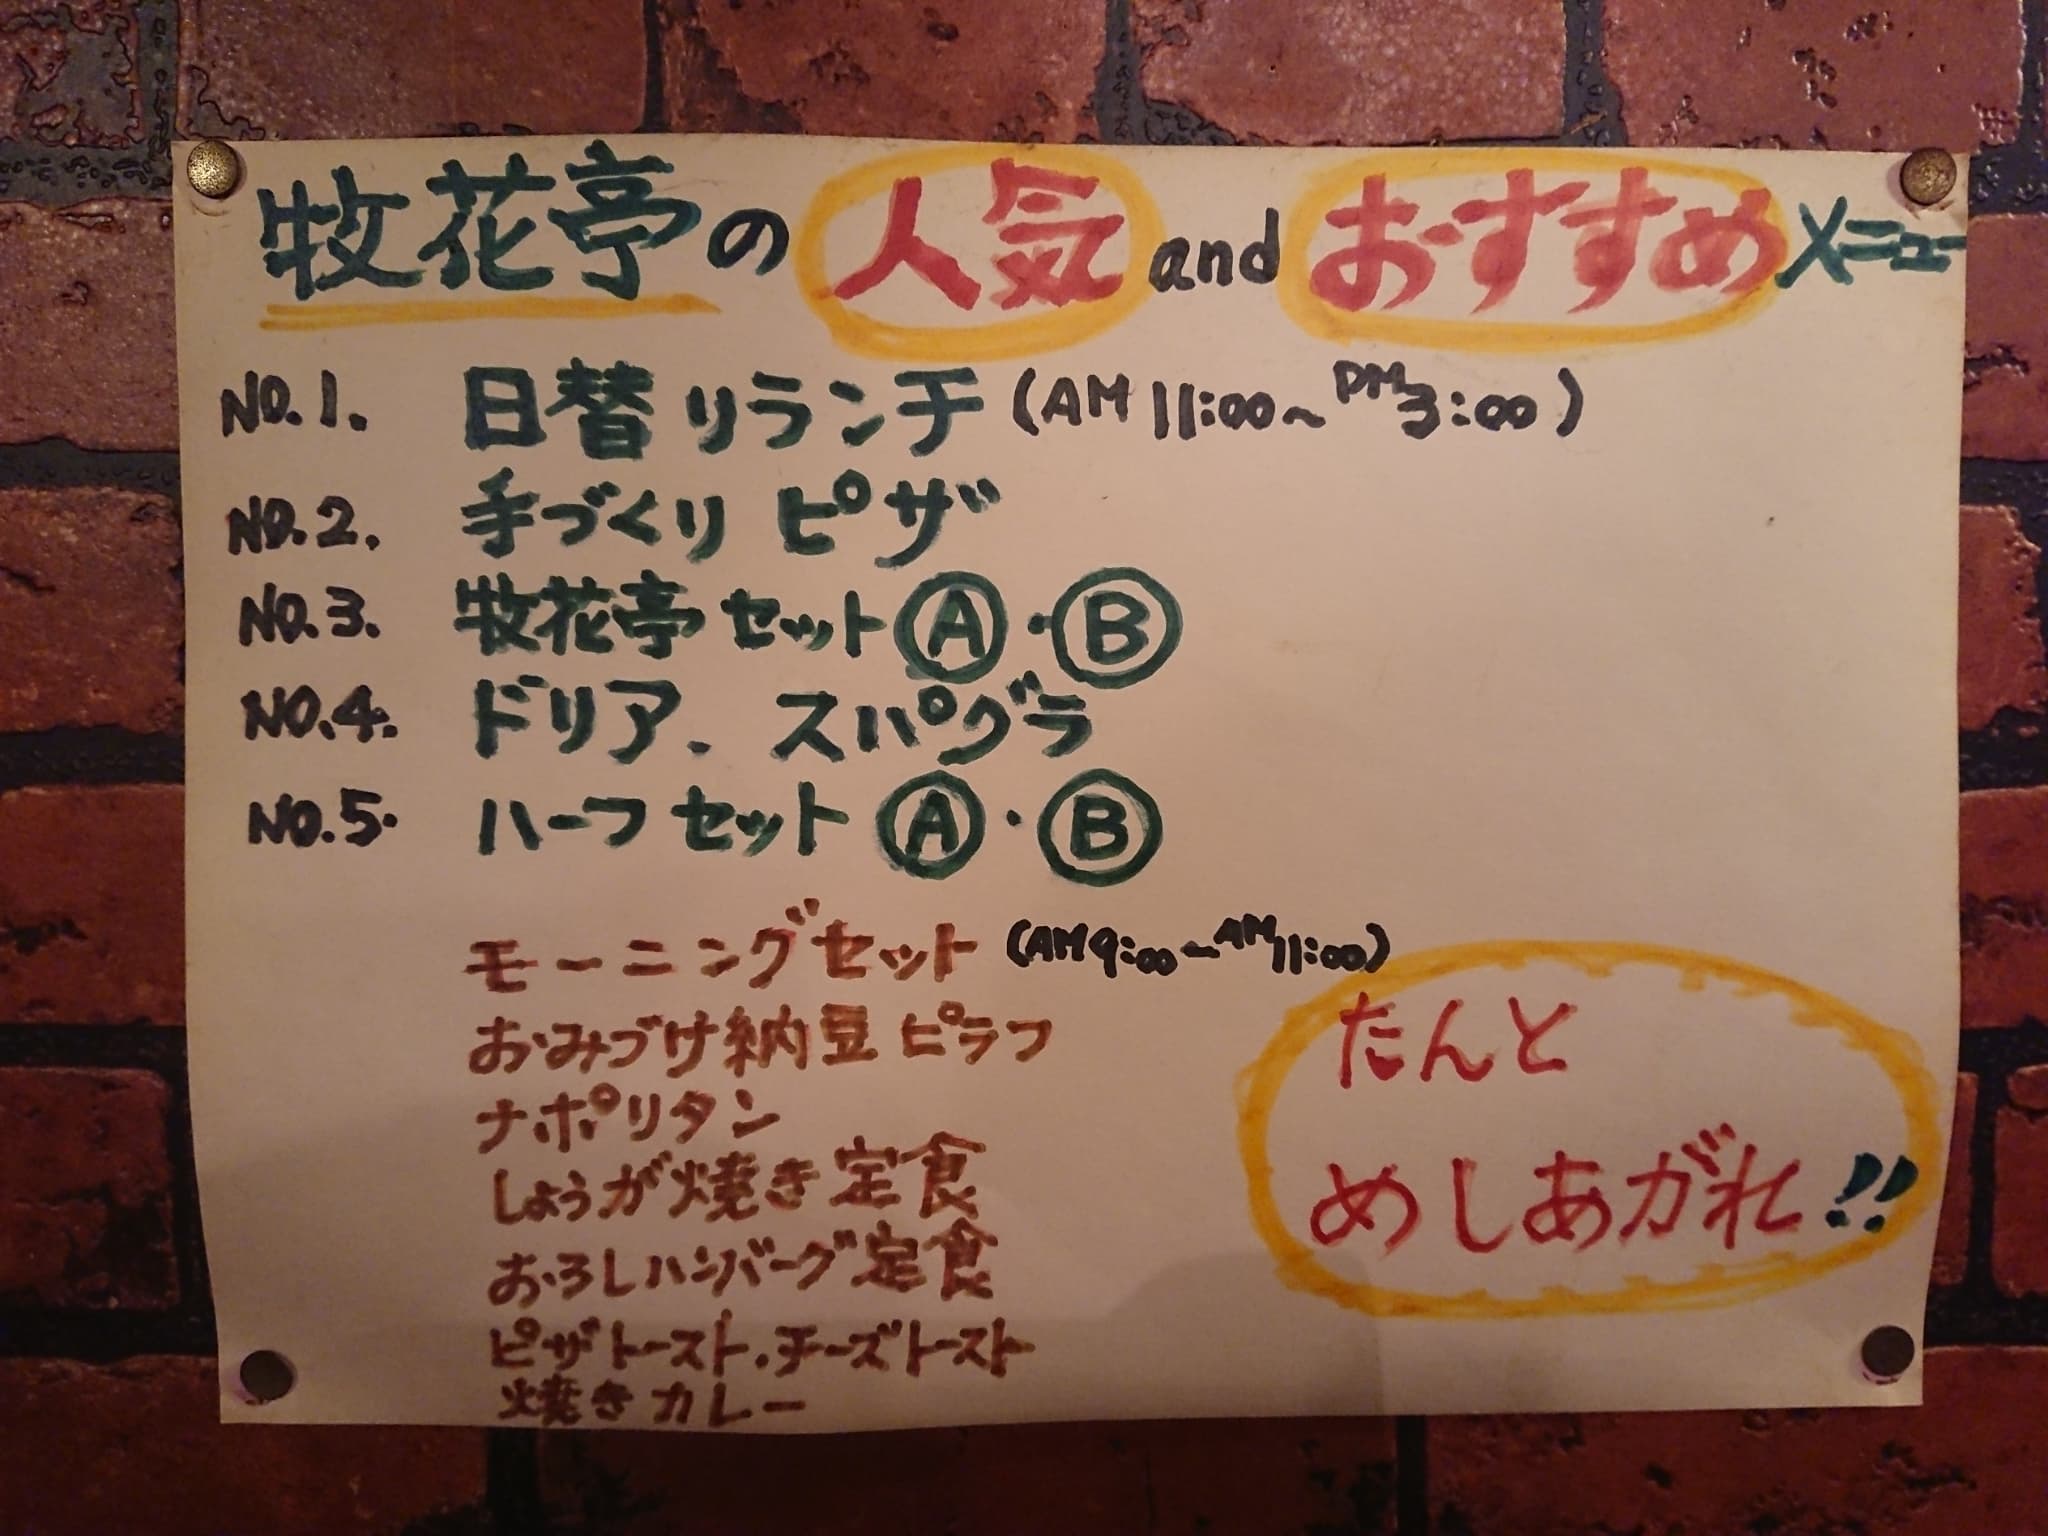 牧花亭の人気andおすすめメニュー
NO.1. 日替りランチ (AM11:00~PM3:00)
NO.2. 手づくりピザ
NO.3. 牧花亭セットⒶ・Ⓑ
NO.4. ドリア、スパグラ
NO.5. ハーフセットⒶ・Ⓑ
モーニングセット (AM9:00~AM11:00)
おみづけ納豆ピラフ
ナポリタン
しょうが焼き定食
おろしハンバーグ定食
ピザトースト、チーズトースト
焼きカレー
たんと
めしあがれ!!